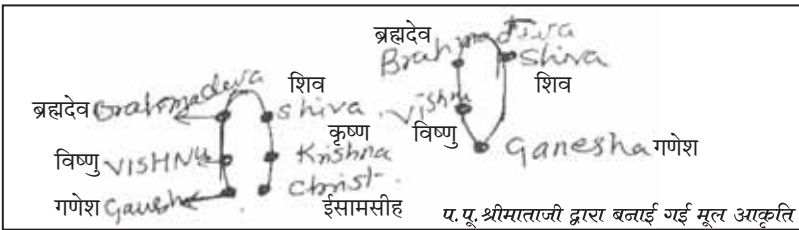 ब्रह्मदेव Brahmadeva
शिव
Shiva
कृष्ण
विष्णु VISHNU
Krishna
गणेश Ganesh
Christ
ईसामसीह
ब्रह्मदेव
Brahmadeva
Shiva
शिव
Vishnu
विष्णु
Ganesha गणेश
प. पू. श्रीमाताजी द्वारा बनाई गई मूल आकृति